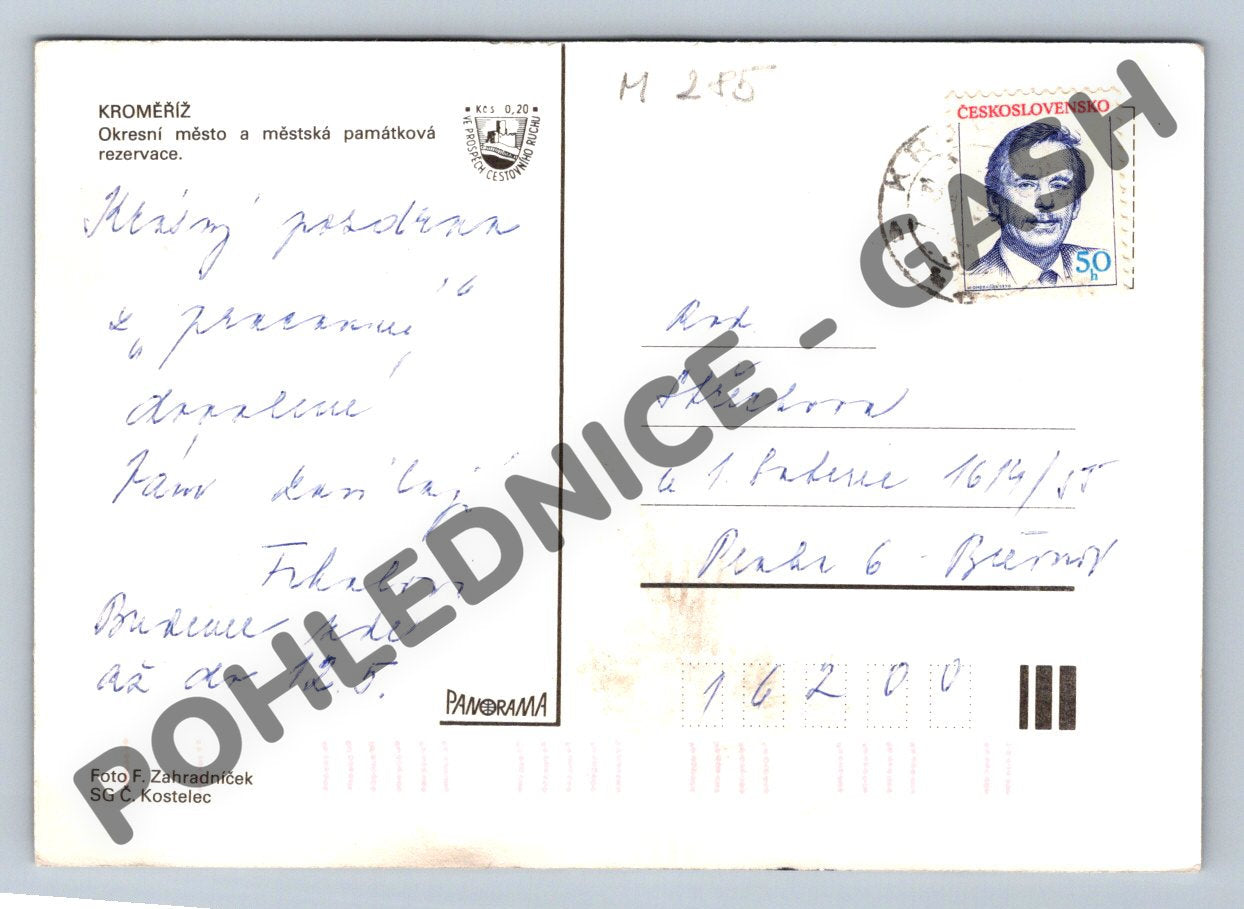 KROMĚŘÍŽ
Okresní město a městská památková
rezervace.
Kčs 0,20
VE PROSPĚCH CESTOVNÍHO RUCHU
M 285
ČESKOSLOVENSKO
50
h
Krásný pozdrav
z „pracovní“
dovolené
Vám
Budeme zde
až do 12.5.
Rod.
1614/55
Praha 6 - Břevnov
16200
PANORAMA
Foto F. Zahradníček
SG Č. Kostelec
POHLEDNICE - GASH